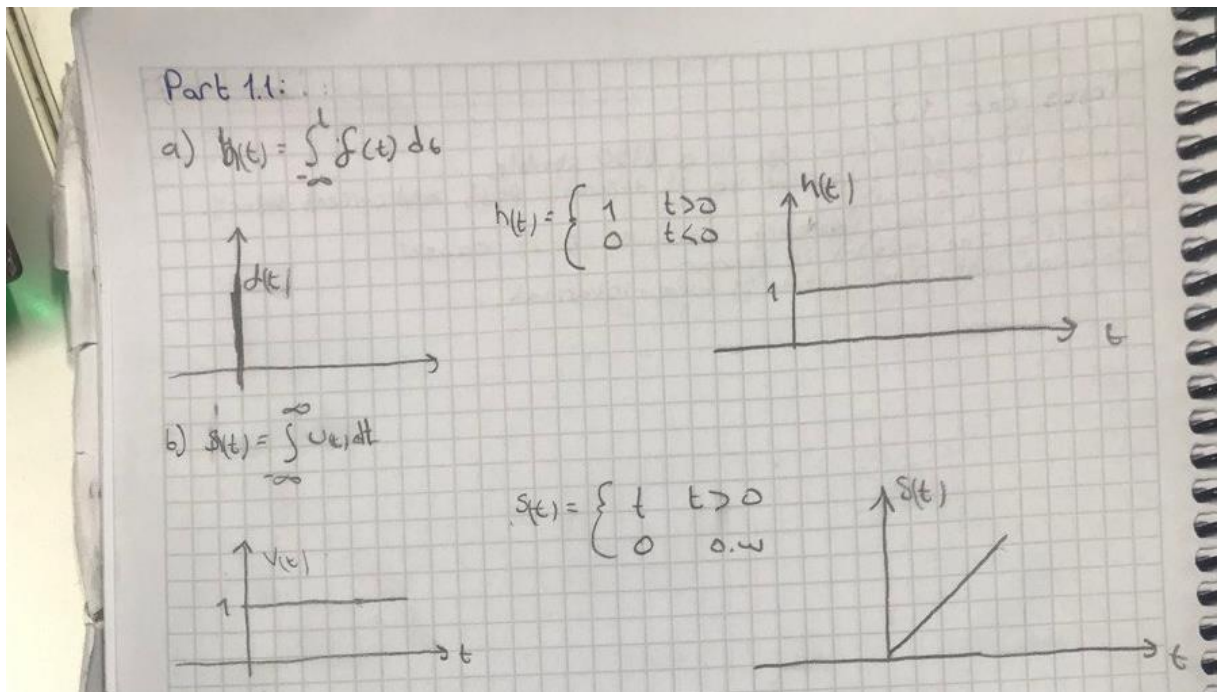 Part 1.1:
a) h(t) = ∫_{-∞}^{t} δ(t) dt
h(t) = { 1 t>0
0 t<0
δ(t)
h(t)
1
t
b) s(t) = ∫_{-∞}^{∞} u(t) dt
s(t) = { t t>0
0 o.w
U(t)
1
t
S(t)
t